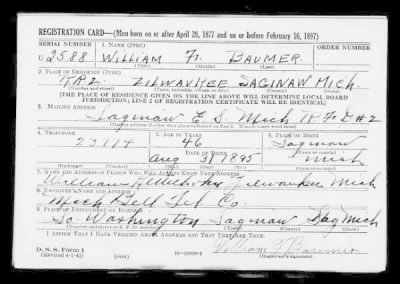 REGISTRATION CARD—(Men born on or after April 28, 1877 and on or before February 16, 1897)
SERIAL NUMBER 1. NAME (Print) ORDER NUMBER
U 2588 WILLIAM F. BAUMER
(First) (Middle) (Last)
2. PLACE OF RESIDENCE (Print)
RR2 ZILWAUKEE SAGINAW MICH.
(Number and street) (Town, township, village, or city) (County) (State)
[THE PLACE OF RESIDENCE GIVEN ON THE LINE ABOVE WILL DETERMINE LOCAL BOARD
JURISDICTION; LINE 2 OF REGISTRATION CERTIFICATE WILL BE IDENTICAL]
3. MAILING ADDRESS
Saginaw E. S. Mich RFD #2
[Mailing address if other than place indicated on line 2. If same insert word same]
4. TELEPHONE 5. AGE IN YEARS 6. PLACE OF BIRTH
23174 46 Saginaw
DATE OF BIRTH
Aug 31 1895 Mich
(Exchange) (Number) (Mo.) (Day) (Yr.) (State or country)
7. NAME AND ADDRESS OF PERSON WHO WILL ALWAYS KNOW YOUR ADDRESS
William Zilwaukee Mich
8. EMPLOYER'S NAME AND ADDRESS
Mich Bell Tel Co.
9. PLACE OF EMPLOYMENT OR BUSINESS
So. Washington Saginaw Sag Mich
(Number and street or R. F. D. number) (Town) (County) (State)
I AFFIRM THAT I HAVE VERIFIED ABOVE ANSWERS AND THAT THEY ARE TRUE.
D. S. S. Form 1
(Revised 4-1-42) (over) William F. Baumer
(Registrant's signature)